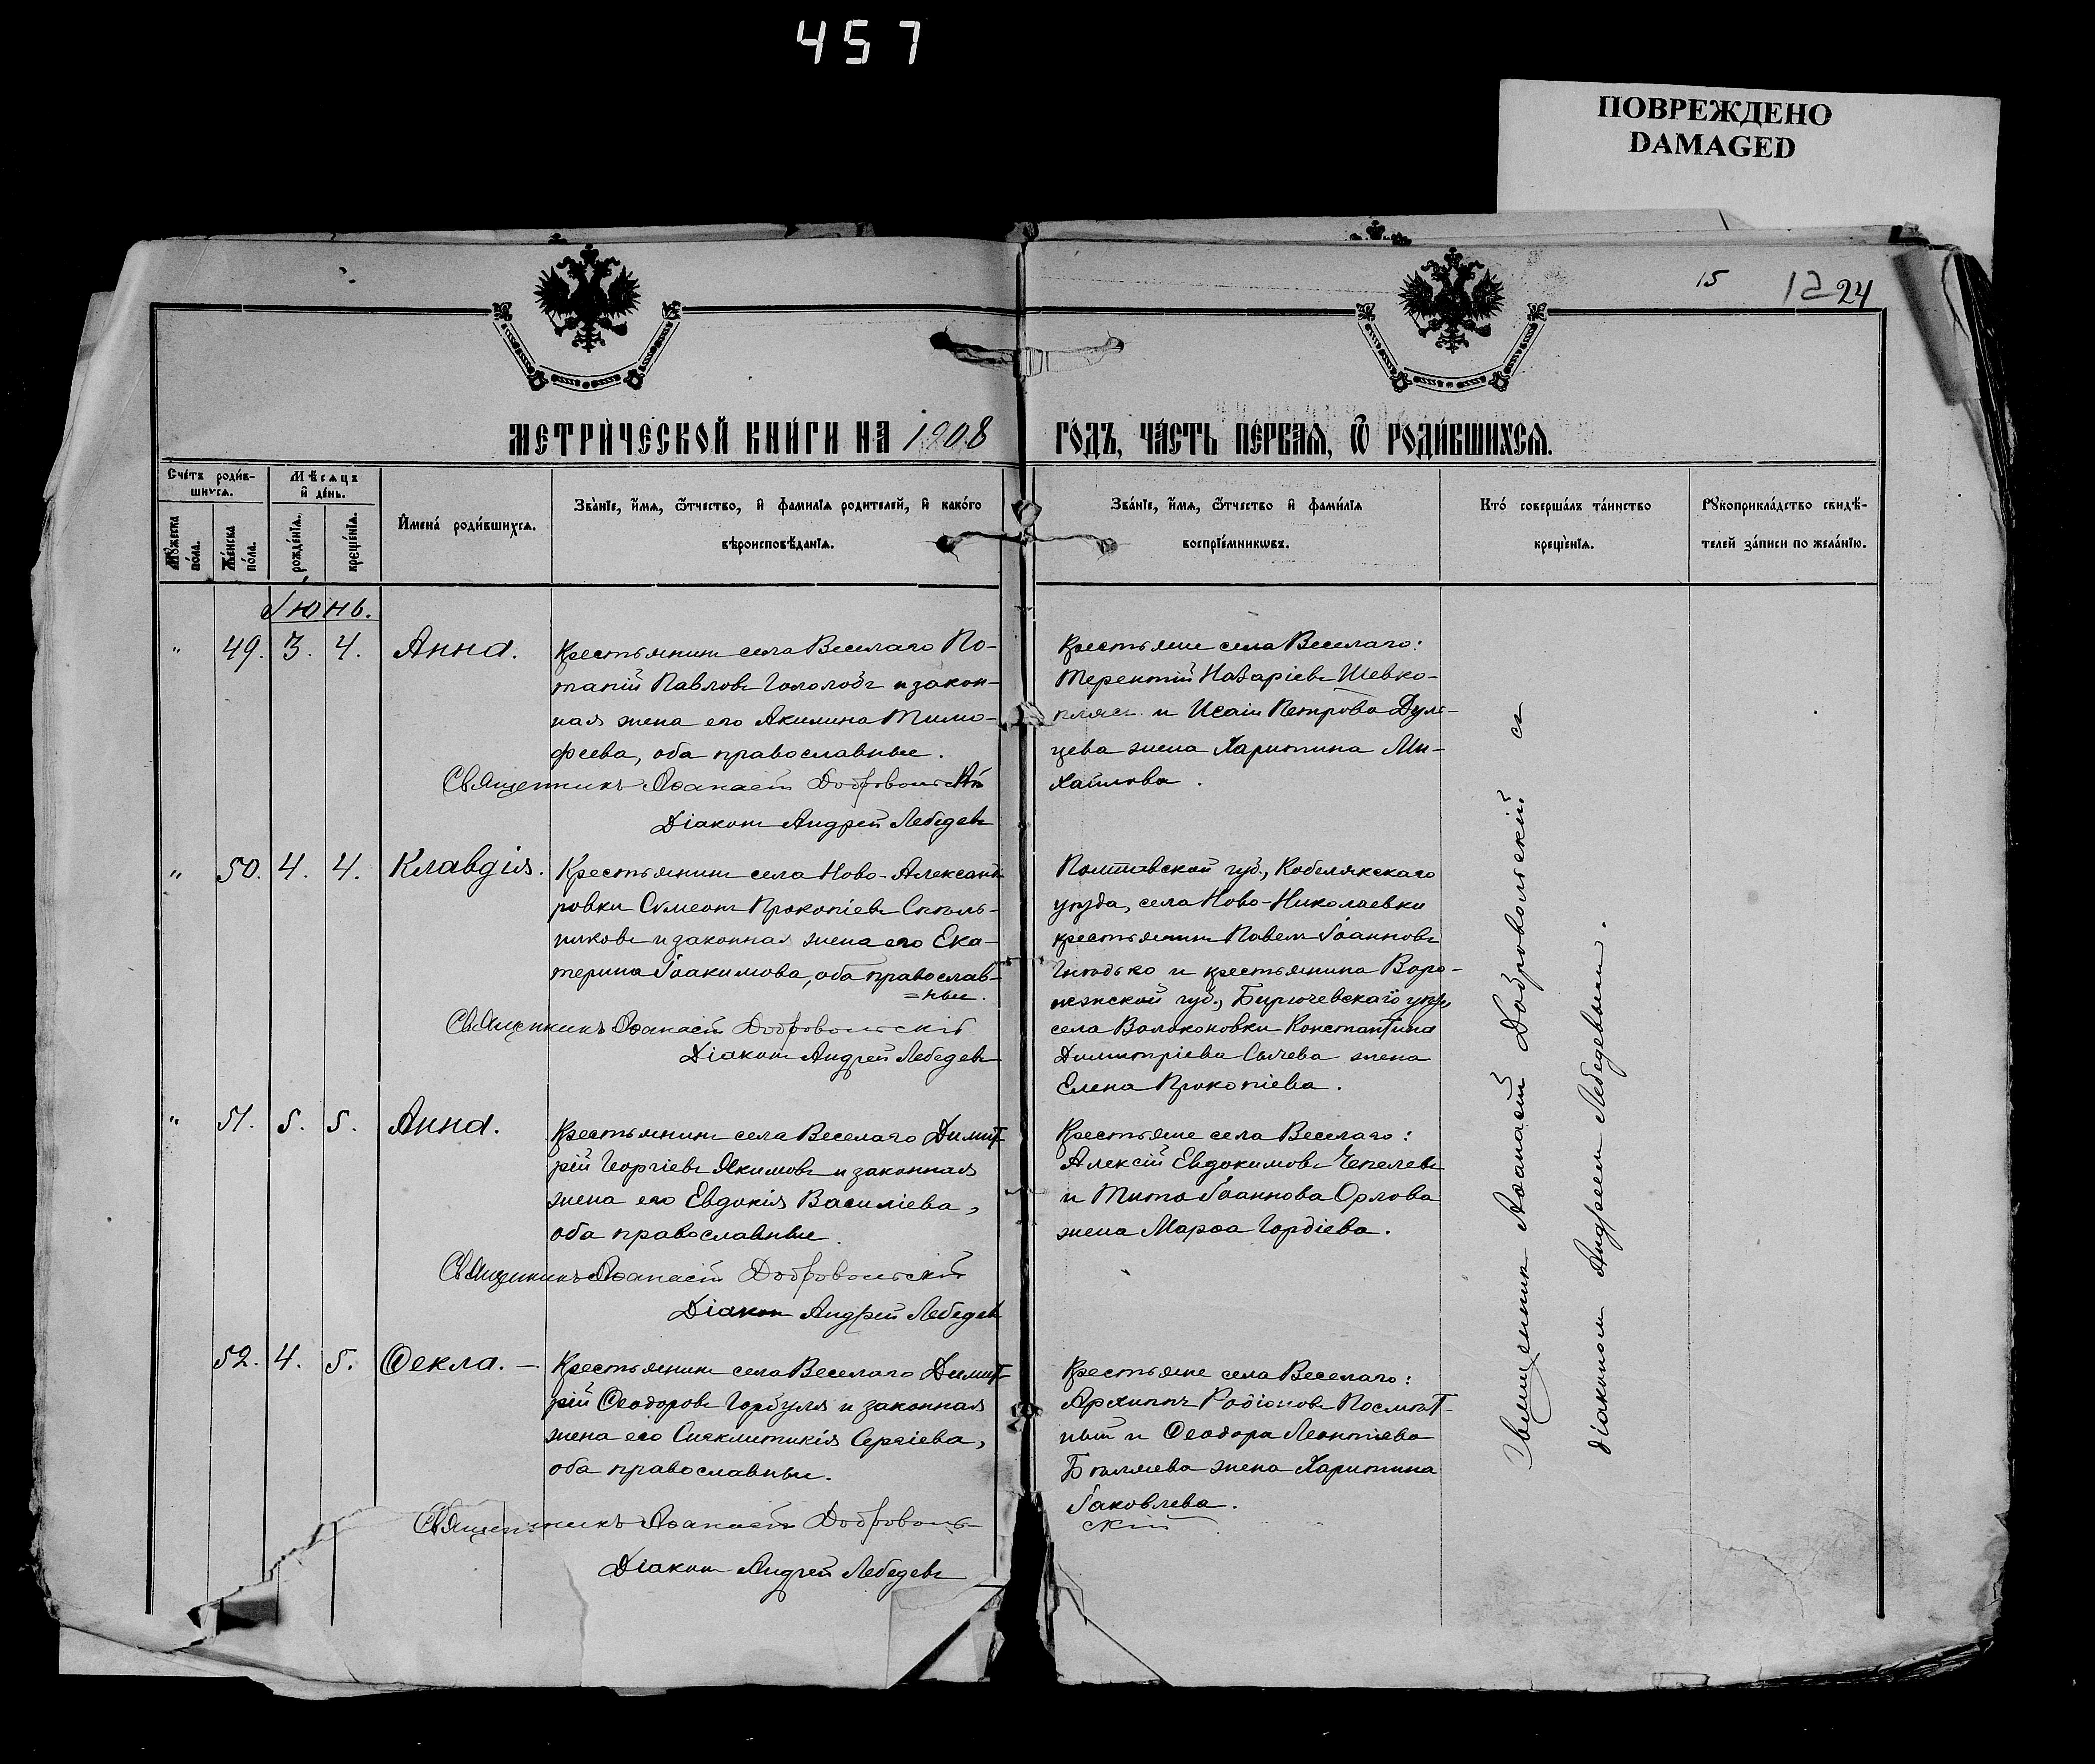 457
ПОВРЕЖДЕНО
DAMAGED
15 12 24
МЕТРИЧЕСКОЙ КНИГИ НА 1908 ГОДЪ, ЧАСТЬ ПЕРВАЯ, Ѡ РОДИВШИХСЯ.
Счетъ родив-
шихся.
Мѣсяцъ
и день.
Мужеска
пола.
Женска
пола.
рожденія.
крещенія.
Имена родившихся.
Званіе, имя, ѿтчество, и фамилія родителей, и какого
вѣроисповѣданія.
Званіе, имя, ѿтчество и фамилія
воспріемникѡвъ.
Кто совершалъ таинство
крещенія.
Рукоприкладство свидѣ-
телей записи по желанію.
Іюнь.
" 49. 3. 4. Анна.
Крестьянинъ села Веселаго По-
тапій Павловъ Гололобъ и закон-
ная жена его Акилина Тимо-
феева, оба православные.
Священникъ Аѳанасій Добровольскій
Діаконъ Андрей Лебедевъ
Крестьяне села Веселаго:
Терентій Назаріевъ Шевко-
плясъ и Исаіи Петрова Дуль-
цева жена Харитина Ми-
хаилова.
" 50. 4. 4. Клавдія.
Крестьянинъ села Ново-Александ-
ровки Симеонъ Прокопіевъ
и законная жена его Ека-
терина Іоакимова, оба православ-
=ные.
Священникъ Аѳанасій Добровольскій
Діаконъ Андрей Лебедевъ
Полтавской губ., Кобелякскаго
уѣзда, села Ново-Николаевки
крестьянинъ Павелъ Іоанновъ
и крестьянина Воро-
нежской губ., Бирючевскаго уѣзд.
села Волоконовки Константина
Димитріева Сычева жена
Елена Прокопіева.
" 51. 5. 5. Анна.
Крестьянинъ села Веселаго Димит-
рій Георгіевъ Якимовъ и законная
жена его Евдокія Василіева,
оба православные.
Священникъ Аѳанасій Добровольскій
Діаконъ Андрей Лебедевъ
Крестьяне села Веселаго:
Алексій Евдокимовъ Чепелевъ
и Тита Іоаннова Орлова
жена Марѳа Гордіева.
52. 4. 5. Ѳекла. —
Крестьянинъ села Веселаго Димит-
рій Ѳеодоровъ Горбуля и законная
жена его Синклитикія Сергіева,
оба православные.
Священникъ Аѳанасій Доброволь-
скій
Діаконъ Андрей Лебедевъ
Крестьяне села Веселаго:
Архиппъ Родіоновъ Посмит-
ный и Ѳеодора Леонтіева
Бѣляева жена Харитина
Іаковлева.
Священникъ Аѳанасій Добровольскій съ
діакономъ Андреемъ Лебедевымъ.